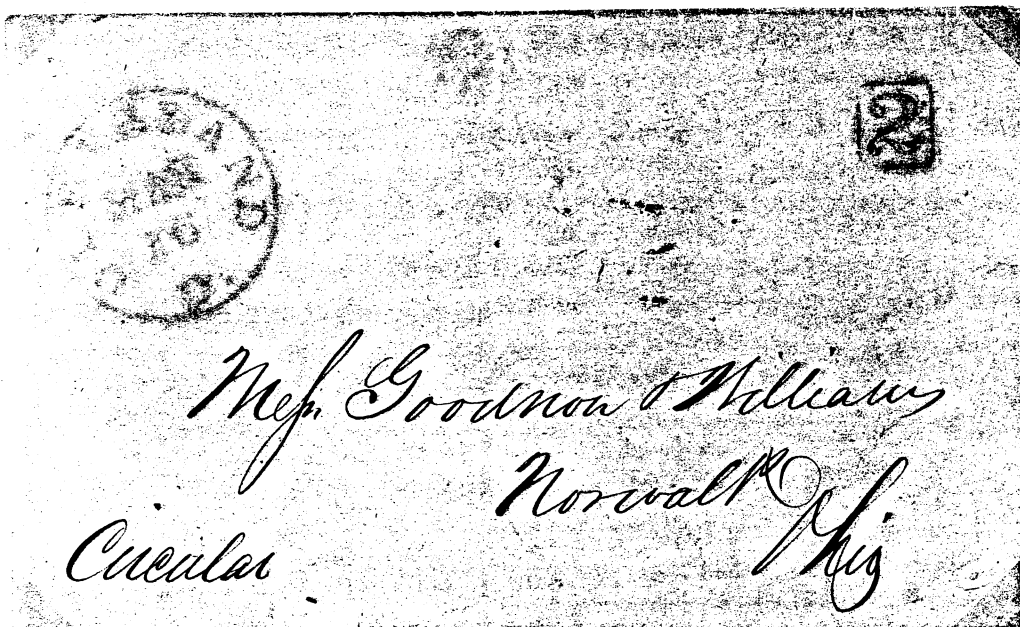 2
Mess. Goodnow & Williams
Norwalk Ohio
Circular